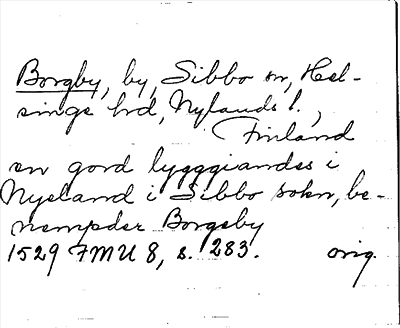 Borgby, by, Sibbo sn, Hel-
singe hrd, Nylands l.,
Finland
en gord lygggiandes i
Nyeland i Sibbo sokn, be-
nempder Borgeby
1529 FMU 8, s. 283. orig.